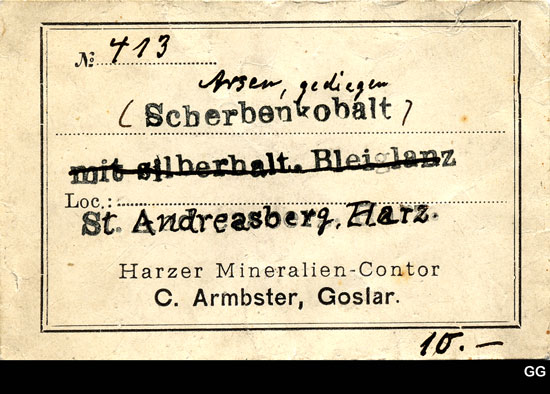 № 413
Arsen, gediegen
(Scherbenkobalt)
mit silberhalt. Bleiglanz
Loc.:
St. Andreasberg, Harz.
Harzer Mineralien-Contor
C. Armbster, Goslar.
10.—
GG